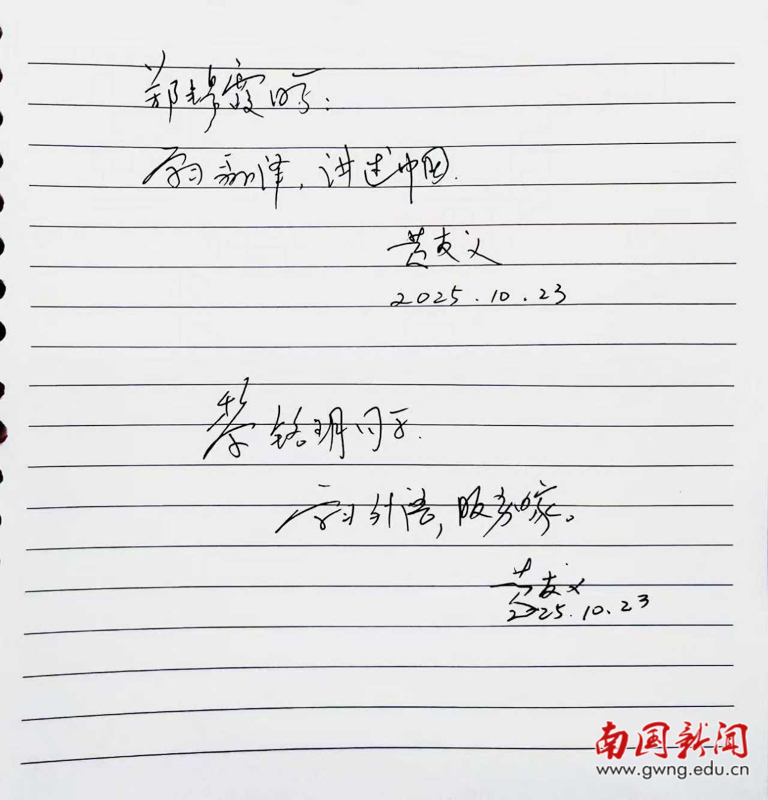 郑
学习翻译，讲述中国.
黄友义
2025.10.23
黎铭玥同学.
学习外语，服务国家。
黄友义
2025.10.23
南国新闻
www.gwng.edu.cn